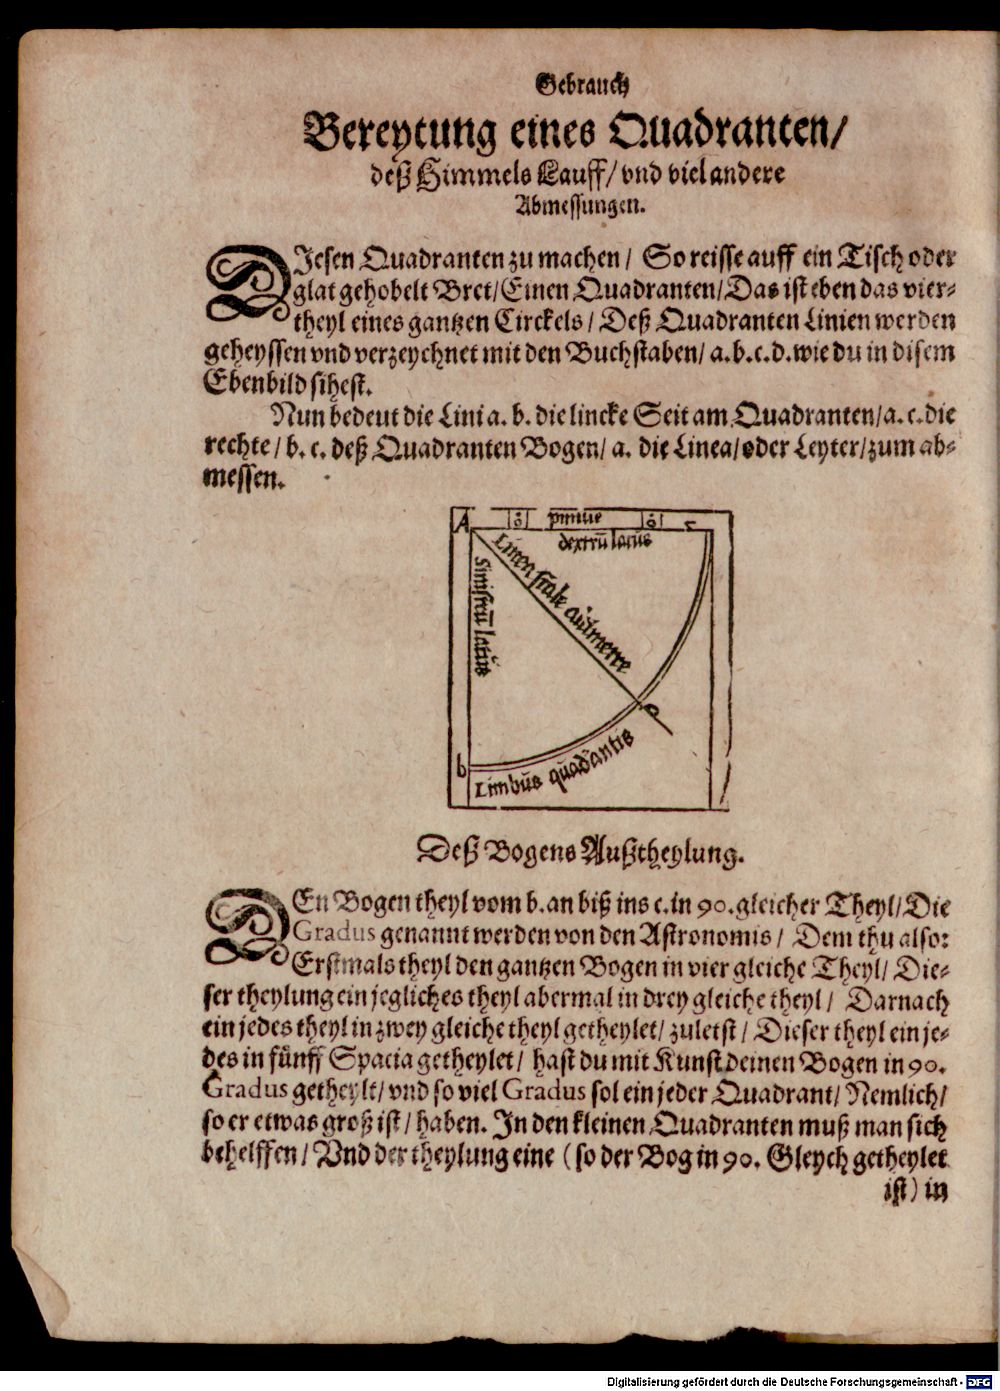 Gebrauch
Bereytung eines Quadranten/
deß Himmels Lauff/ vnd viel andere
Abmessungen.
DIesen Quadranten zu machen/ So reisse auff ein Tisch oder
glat gehobelt Bret/ Einen Quadranten/ Das ist eben das vier-
theyl eines gantzen Circkels/ Deß Quadranten Linien werden
geheyssen vnd verzeychnet mit den Buchstaben/ a. b. c. d. wie du in disem
Ebenbild sihest.
Nun bedeut die Lini a. b. die lincke Seit am Quadranten/ a. c. die
rechte/ b. c. deß Quadranten Bogen/ a. die Linea/ oder Leyter/ zum ab-
messen.
A pinnue c
dextrū latus
Linea
sinistrū latus
b
Limbus quadrantis
Deß Bogens Außtheylung.
DEn Bogen theyl vom b. an biß ins c. in 90. gleicher Theyl/ Die
Gradus genannt werden von den Astronomis/ Dem thu also:
Erstmals theyl den gantzen Bogen in vier gleiche Theyl/ Die-
ser theylung ein jegliches theyl abermal in drey gleiche theyl/ Darnach
ein jedes theyl in zwey gleiche theyl getheylet/ zuletst/ Dieser theyl ein je-
des in fünff Spacia getheylet/ hast du mit Kunst deinen Bogen in 90.
Gradus getheylt/ vnd so viel Gradus sol ein jeder Quadrant/ Nemlich/
so er etwas groß ist/ haben. In den kleinen Quadranten muß man sich
behelffen/ Vnd der theylung eine (so der Bog in 90. Gleych getheylet
ist) in
Digitalisierung gefördert durch die Deutsche Forschungsgemeinschaft - DFG